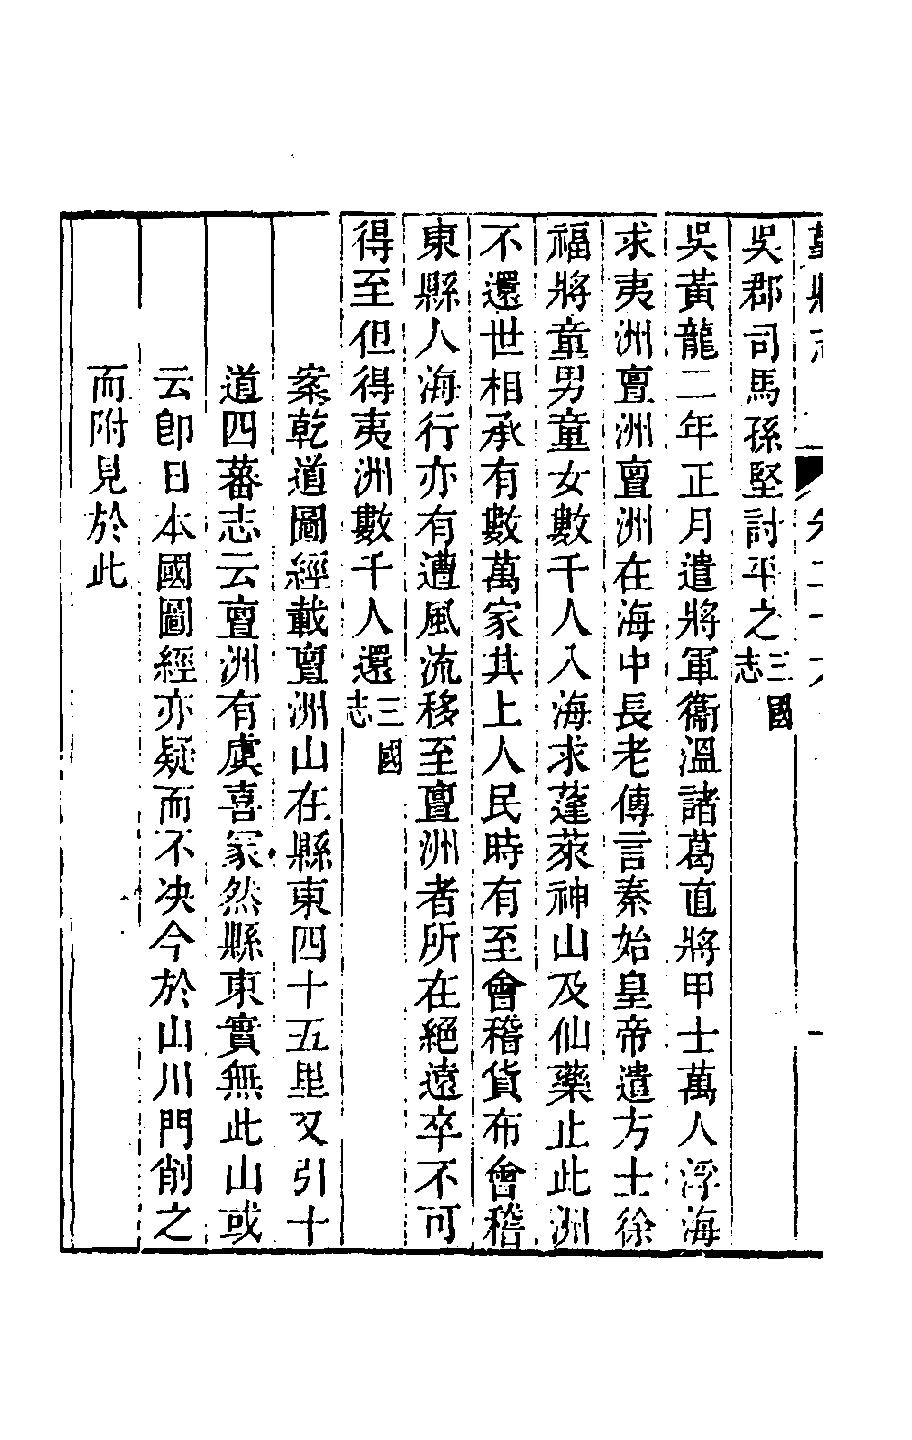 吳郡司馬孫堅討平之三國志
吳黃龍二年正月遣將軍衞溫諸葛直將甲士萬人浮海
求夷洲亶洲亶洲在海中長老傳言秦始皇帝遣方士徐
福將童男童女數千人入海求蓬萊神山及仙藥止此洲
不還世相承有數萬家其上人民時有至會稽貨布會稽
東縣人海行亦有遭風流移至亶洲者所在絕遠卒不可
得至但得夷洲數千人還三國志
案乾道圖經載亶洲山在縣東四十五里又引十
道四蕃志云亶洲有虞喜冢然縣東實無此山或
云卽日本國圖經亦疑而不决今於山川門削之
而附見於此